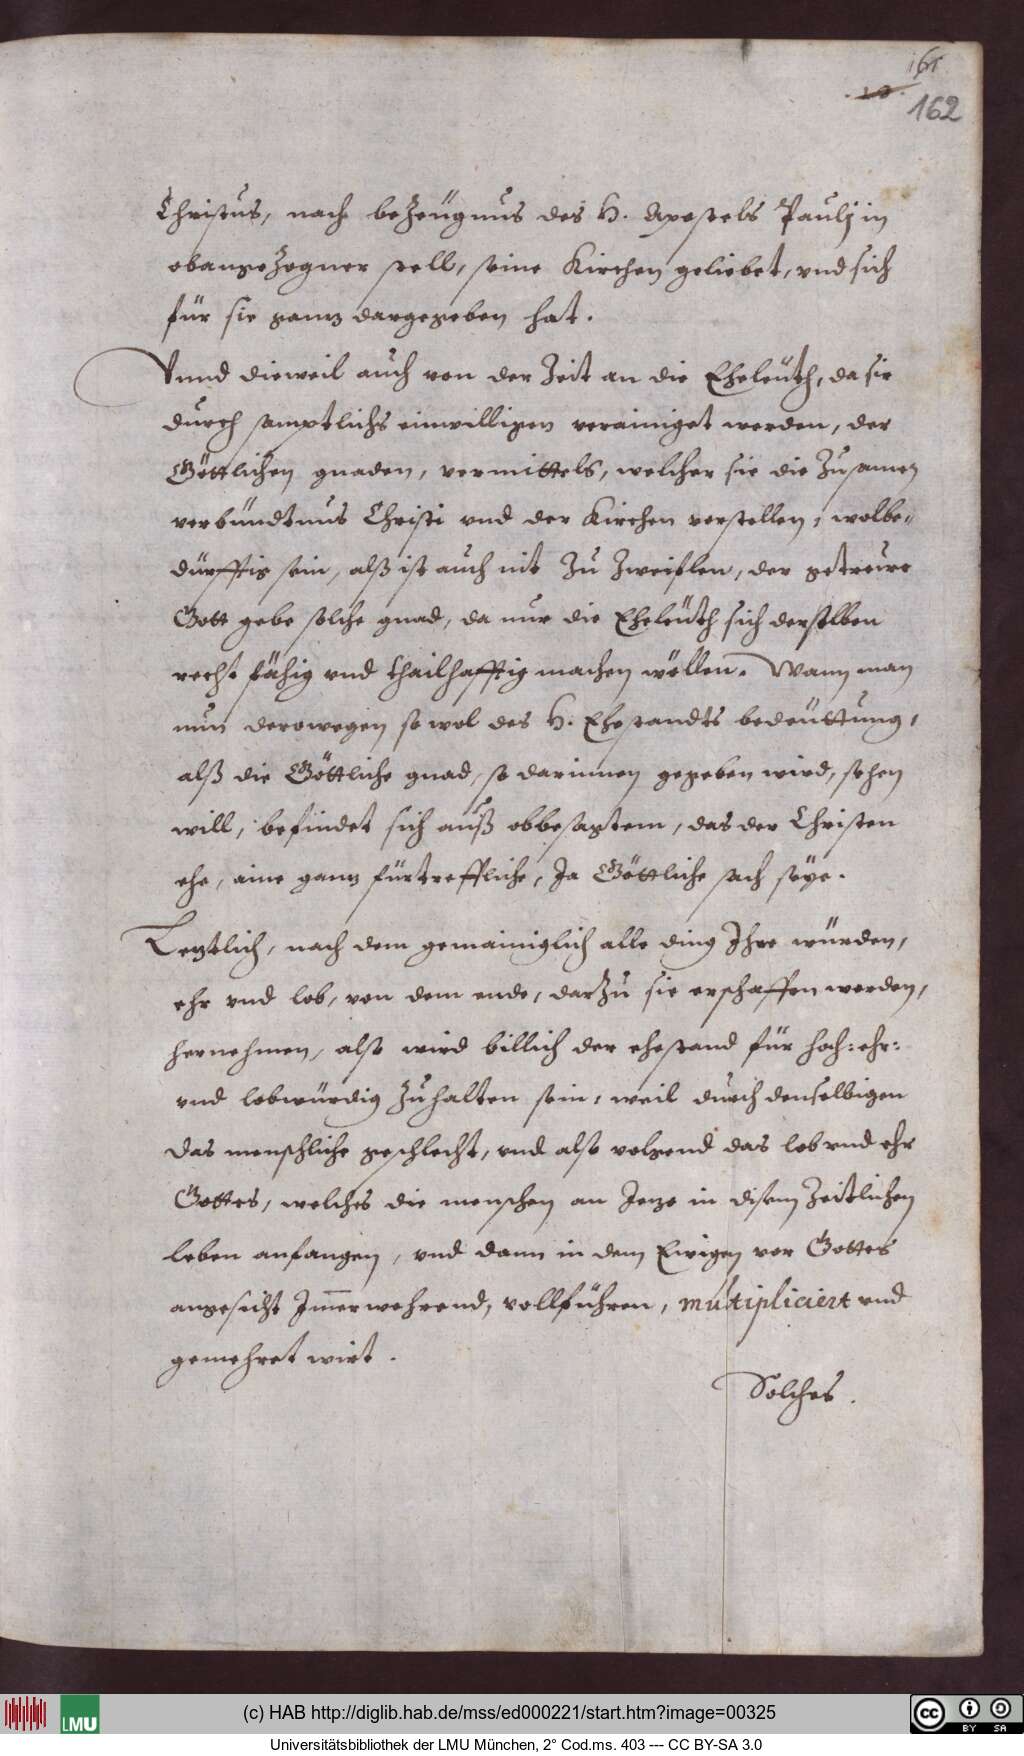 161
20
162
Christus, nach bezeügnus des H. Apostels Paulj in
obangezogner stell, seine Kirchen geliebet, vnd sich
für sie gantz dargegeben hat.
Vnnd dieweil auch von der Zeit an die Eheleüth, da sie
durch samptlichs einwilligen verainiget werden, der
Göttlichen gnaden, vermittels, welcher sie die Zusamen
verbündtnus Christi vnd der Kirchen vorstellen, wolbe-
dürfftig sein, alß ist auch nit Zu Zweiflen, der getreüe
Gott gebe solche gnad, da nur die Eheleüth sich derselben
recht fähig vnd thailhafftig machen wöllen. Wann man
nun derowegen so wol des H. Ehestandts bedeüttung,
alß die Göttliche gnad, so darinnen gegeben wird, sehen
will, befindet sich auß obbesagtem, das der Christen
ehe, aine gantz fürtreffliche, Ja Göttliche sach seye.
Letztlich, nach dem gemainiglich alle ding Ihre würden,
ehr vnd lob, von dem ende, darZu sie erschaffen worden,
hernehmen, also wird billich der ehestand für hoch: ehr:
vnd lobwürdig Zuhalten sein, weil durch denselbigen
das menschliche geschlecht, vnd also volgend das lob vnd ehr
Gottes, welches die menschen an Jetzo in disem Zeitlichen
leben anfangen, vnd dann in dem Ewigen vor Gottes
angesicht Im̅erwehrend, vollführen, multipliciert vnd
gemehret wirt.
Solches.
LMU
(c) HAB http://diglib.hab.de/mss/ed000221/start.htm?image=00325
cc BY SA
Universitätsbibliothek der LMU München, 2° Cod.ms. 403 --- CC BY-SA 3.0